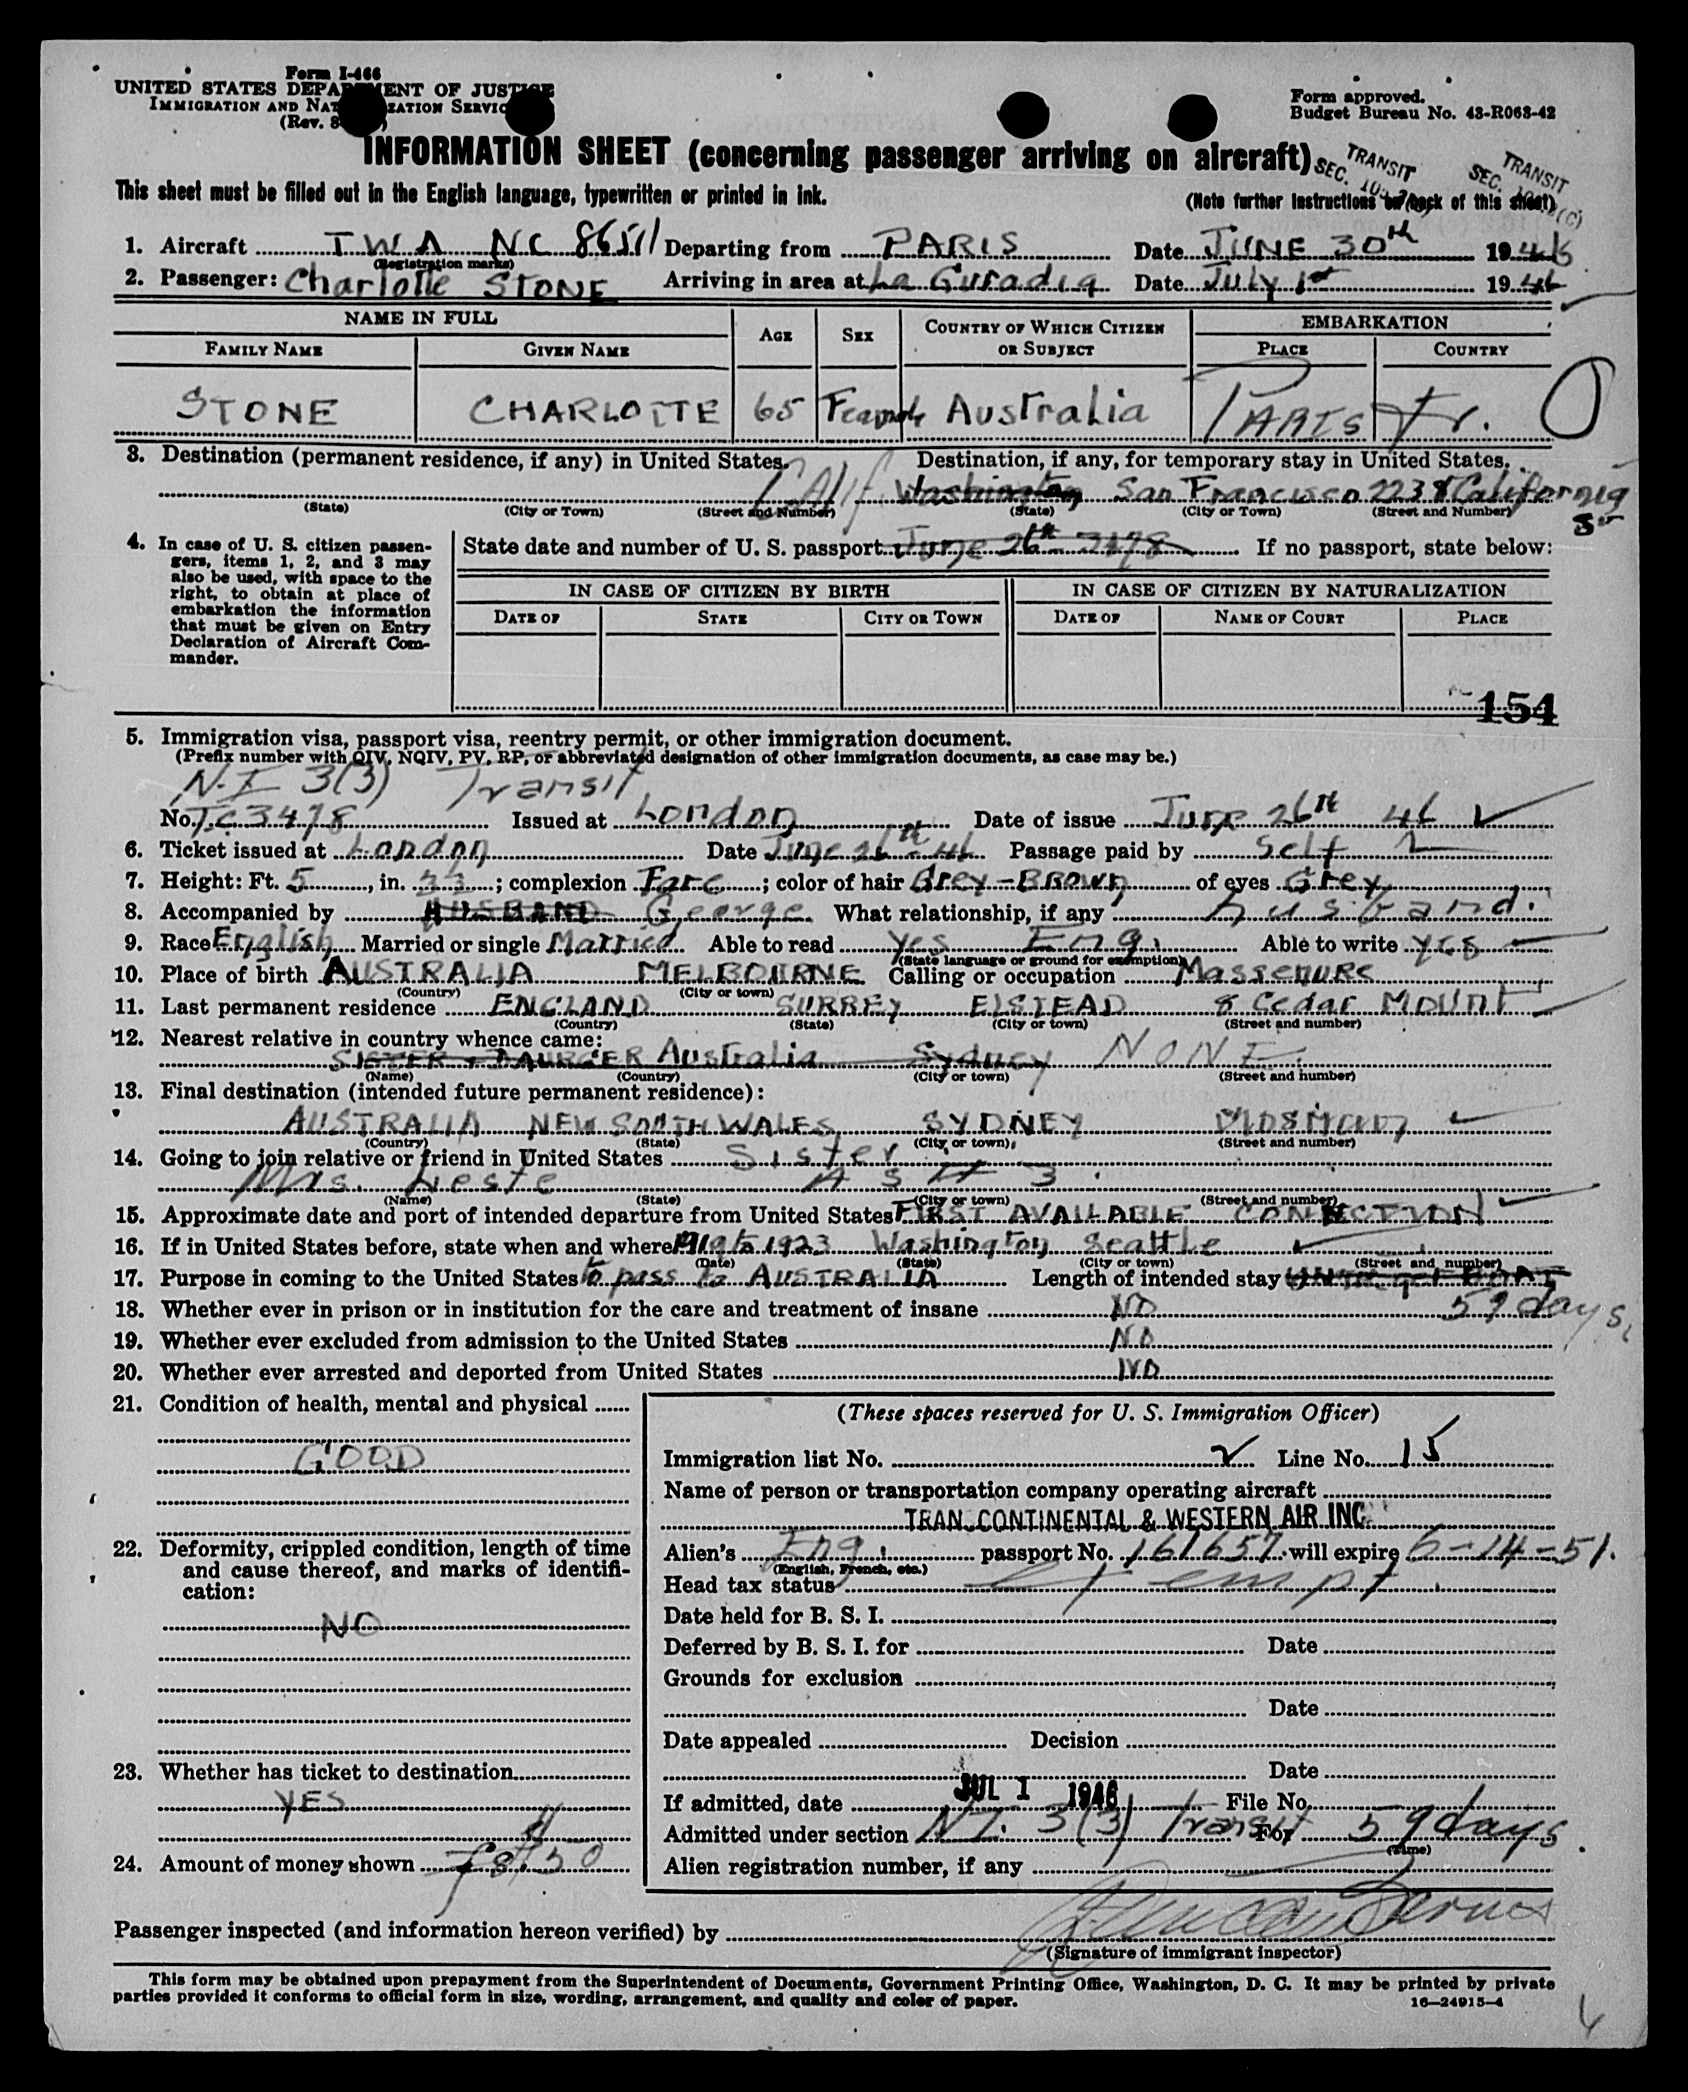 Form I-466
UNITED STATES DEPARTMENT OF JUSTICE
IMMIGRATION AND NATURALIZATION SERVICE
(Rev. 8
Form approved.
Budget Bureau No. 43-R063-42
INFORMATION SHEET (concerning passenger arriving on aircraft)
TRANSIT SEC.
TRANSIT SEC.
This sheet must be filled out in the English language, typewritten or printed in ink.
(Note further instructions on back of this sheet)
1. Aircraft TWA NC 86511 Departing from PARIS Date JUNE 30th 1946
(Registration marks)
2. Passenger: Charlotte STONE Arriving in area at La Guradia Date July 1st 1946
NAME IN FULL AGE SEX COUNTRY OF WHICH CITIZEN OR SUBJECT EMBARKATION
FAMILY NAME GIVEN NAME PLACE COUNTRY
STONE CHARLOTTE 65 Female Australia PARIS Fr.
3. Destination (permanent residence, if any) in United States. Destination, if any, for temporary stay in United States.
Calif Washington San Francisco 2238 California
(State) (City or Town) (Street and Number) (State) (City or Town) (Street and Number)
4. In case of U. S. citizen passengers, items 1, 2, and 3 may also be used, with space to the right, to obtain at place of embarkation the information that must be given on Entry Declaration of Aircraft Commander.
State date and number of U. S. passport June 26th 3478 If no passport, state below:
IN CASE OF CITIZEN BY BIRTH IN CASE OF CITIZEN BY NATURALIZATION
DATE OF STATE CITY OR TOWN DATE OF NAME OF COURT PLACE
154
5. Immigration visa, passport visa, reentry permit, or other immigration document.
(Prefix number with QIV, NQIV, PV, RP, or abbreviated designation of other immigration documents, as case may be.)
N.I 3(3) Transit
No. T.C 3478 Issued at London Date of issue June 26th 46
6. Ticket issued at London Date June 26th 46 Passage paid by Self
7. Height: Ft. 5, in. ; complexion Fare; color of hair Grey-BROWN of eyes Grey
8. Accompanied by HUSBAND George What relationship, if any husband.
9. Race English Married or single Married Able to read yes Eng. Able to write yes
(State language or ground for exemption)
10. Place of birth AUSTRALIA MELBOURNE Calling or occupation Massenurs
(Country) (City or town)
11. Last permanent residence ENGLAND SURREY ELSTEAD 8 Cedar MOUNT
(Country) (State) (City or town) (Street and number)
12. Nearest relative in country whence came:
SISTER + DAURGER Australia Sydney NONE.
(Name) (Country) (City or town) (Street and number)
13. Final destination (intended future permanent residence):
AUSTRALIA NEW SOUTH WALES SYDNEY MOSMAN
(Country) (State) (City or town) (Street and number)
14. Going to join relative or friend in United States Sister
Mrs. Leste AS # 3.
(Name) (State) (City or town) (Street and number)
15. Approximate date and port of intended departure from United States FIRST AVAILABLE CONNECTION
16. If in United States before, state when and where 1919 to 1923 Washington Seattle
(Date) (State) (City or town) (Street and number)
17. Purpose in coming to the United States to pass to AUSTRALIA Length of intended stay
18. Whether ever in prison or in institution for the care and treatment of insane NO 59 days.
19. Whether ever excluded from admission to the United States NO
20. Whether ever arrested and deported from United States NO
21. Condition of health, mental and physical
GOOD
22. Deformity, crippled condition, length of time and cause thereof, and marks of identification:
NO
23. Whether has ticket to destination
YES
24. Amount of money shown $50
(These spaces reserved for U. S. Immigration Officer)
Immigration list No. 2 Line No. 15
Name of person or transportation company operating aircraft
TRANSCONTINENTAL & WESTERN AIR INC
Alien's Eng. passport No. 161657 will expire 6-14-51.
(English, French, etc.)
Head tax status Exempt.
Date held for B. S. I.
Deferred by B. S. I. for Date
Grounds for exclusion
Date
Date appealed Decision
Date
If admitted, date JUL 1 1946 File No.
Admitted under section N.I. 3(3) Transit For 59 days.
(Time)
Alien registration number, if any
Passenger inspected (and information hereon verified) by
(Signature of immigrant inspector)
This form may be obtained upon prepayment from the Superintendent of Documents, Government Printing Office, Washington, D. C. It may be printed by private
parties provided it conforms to official form in size, wording, arrangement, and quality and color of paper.
16—24915-4